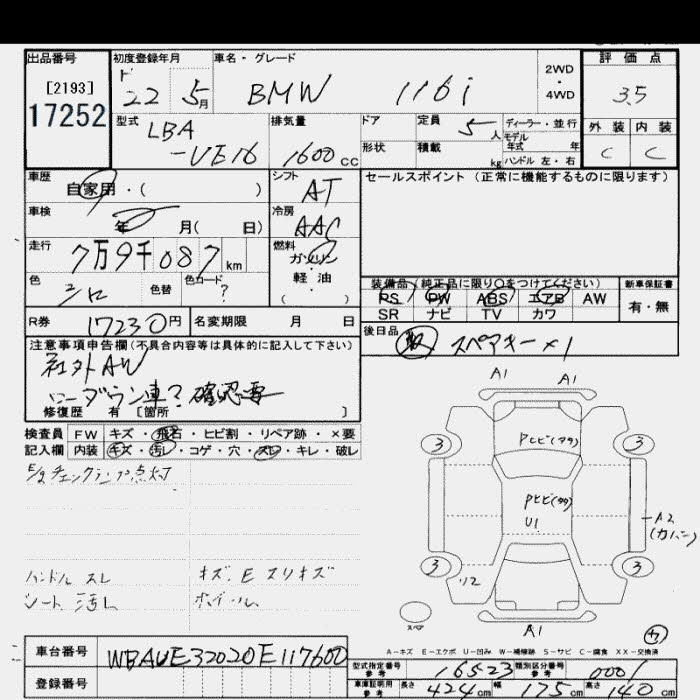 出品番号 初度登録年月 車名・グレード 2WD ・ 4WD 評価点
[2193]
17252
ド 22 5月 BMW 116i 3.5
型式 排気量 ドア 定員 5人 ディーラー・並行 外装 内装
LBA
-UE16 1600cc
形状 積載 kg モデル年式 年 ハンドル 左・右 C C
車歴 シフト セールスポイント (正常に機能するものに限ります)
自家用・( ) AT
車検 年 月( 日) 冷房 AAC
走行 7万9千087km 燃料 ガソリン
軽油
( )
色 色替 色コード ?
装備品 (純正品に限り○をつけてください) 新車保証書
PS PW ABS エアB AW 有・無
SR ナビ TV カワ
R券 17230円 名変期限 月 日
後日品 取 スペアキー×1
注意事項申告欄(不具合内容等は具体的に記入して下さい)
社外AW
ローダウン車? 確認要
修復歴 有 [箇所 ]
検査員 FW キズ・飛石・ヒビ割・リペア跡・×要
記入欄 内装 キズ・汚レ・コゲ・穴・スレ・キレ・破レ
E/gチェックランプ点灯
ハンドル スレ キズ、E スリキズ
シート 汚レ ホイール
A1 A1
3 3
Pヒビ(タタ)
Pヒビ(タタ)
U1
A2
3 3
スペア A1
A-キズ E-エクボ U-凹み W-補修跡 S-サビ C-腐食 XX-交換済
車台番号 WBAUE32020E117600
登録番号
型式指定番号 参考 16523 類別区分番号 参考 0001
車庫証明用 参考 長さ 424cm 幅 175cm 高さ 140cm